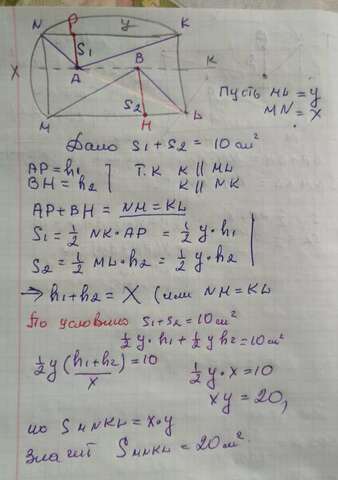 N P y K
S1
X A B K
S2
M H L
Пусть ML = y
MN = x
Дано S1 + S2 = 10 см²
AP = h1 T. K K || ML
BH = h2 K || NK
AP + BH = NH = KL
S1 = 1/2 NK · AP = 1/2 y · h1
S2 = 1/2 ML · h2 = 1/2 y · h2
→ h1 + h2 = X (или NH = KL
По условию S1 + S2 = 10 см²
1/2 y · h1 + 1/2 y h2 = 10 см²
1/2 y (h1 + h2) = 10
x
1/2 y · x = 10
xy = 20,
но S MNKL = x · y
Значит S MNKL = 20 см².